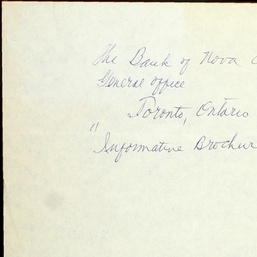 The Bank of Nova
General office
Toronto, Ontario
"Informative Brochur